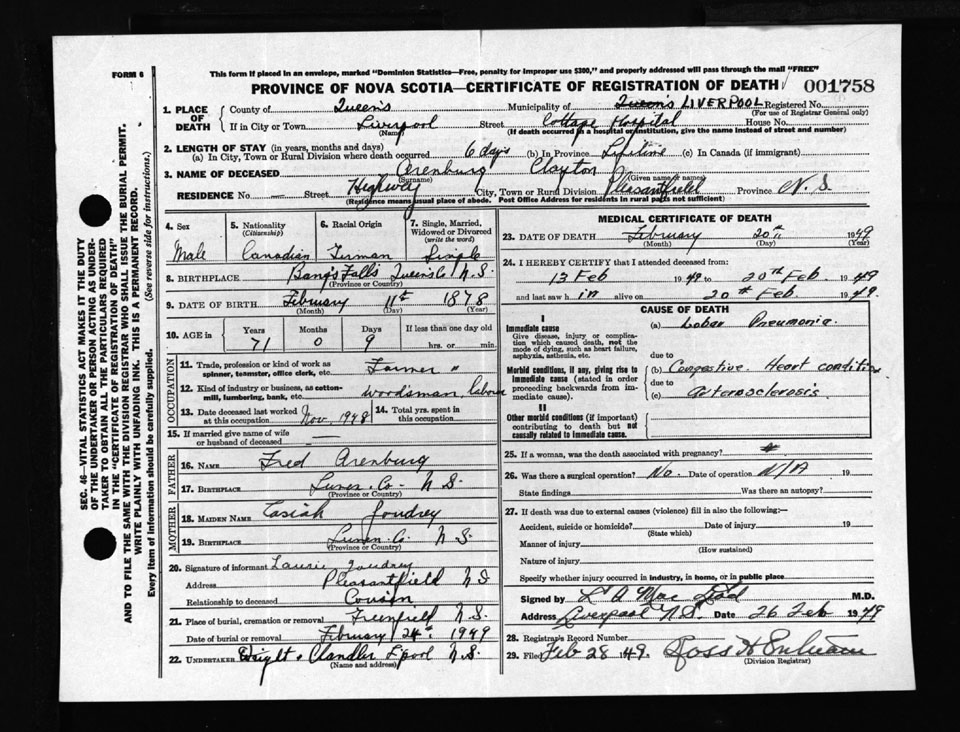 FORM 6
This form if placed in an envelope, marked "Dominion Statistics—Free, penalty for improper use $300," and properly addressed will pass through the mail "FREE"
PROVINCE OF NOVA SCOTIA—CERTIFICATE OF REGISTRATION OF DEATH 001758
1. PLACE OF DEATH County of Queens Municipality of Queens LIVERPOOL Registered No.
(For use of Registrar General only)
If in City or Town Liverpool Street Cottage Hospital House No.
(Name) (If death occurred in a hospital or institution, give the name instead of street and number)
2. LENGTH OF STAY (in years, months and days)
(a) In City, Town or Rural Division where death occurred 6 days (b) In Province Lifetime (c) In Canada (if immigrant)
3. NAME OF DECEASED Arenburg Clayton
(Surname) (Given name or names)
RESIDENCE No. — Street Highway City, Town or Rural Division Pleasantfield Province N.S.
(Residence means usual place of abode. Post Office Address for residents in rural parts not sufficient)
4. Sex Male
5. Nationality (Citizenship) Canadian
6. Racial Origin German
7. Single, Married, Widowed or Divorced (write the word) Single
8. BIRTHPLACE Bangs Falls Queens Co N.S.
(Province or Country)
9. DATE OF BIRTH February 11th 1878
(Month) (Day) (Year)
10. AGE in Years Months Days If less than one day old
71 0 9 hrs. or min.
OCCUPATION
11. Trade, profession or kind of work as spinner, teamster, office clerk, etc. Farmer "
12. Kind of industry or business, as cotton-mill, lumbering, bank, etc. Woodsman, labour
13. Date deceased last worked at this occupation Nov. 1948 14. Total yrs. spent in this occupation
15. If married give name of wife or husband of deceased —
FATHER
16. NAME Fred Arenburg
17. BIRTHPLACE Lunen. Co. N.S.
(Province or Country)
MOTHER
18. MAIDEN NAME Casiah Joudrey
19. BIRTHPLACE Lunen. Co. N.S.
(Province or Country)
20. Signature of informant Laurie Joudrey
Address Pleasantfield N.S
Relationship to deceased Cousin
21. Place of burial, cremation or removal Greenfield N.S.
Date of burial or removal February 24th 1949
22. UNDERTAKER Wright & Chandler L'pool N.S.
(Name and address)
MEDICAL CERTIFICATE OF DEATH
23. DATE OF DEATH February 20th 1949
(Month) (Day) (Year)
24. I HEREBY CERTIFY that I attended deceased from:
13 Feb 1949 to 20th Feb. 1949
and last saw him alive on 20th Feb. 1949.
CAUSE OF DEATH
I
Immediate cause
Give disease, injury or complication which caused death, not the mode of dying, such as heart failure, asphyxia, asthenia, etc.
(a) Lobar Pneumonia.
due to
Morbid conditions, if any, giving rise to immediate cause (stated in order proceeding backwards from immediate cause).
(b) Congestive Heart condition
due to
(c) Arterosclerosis
II
Other morbid conditions (if important) contributing to death but not causally related to immediate cause.
25. If a woman, was the death associated with pregnancy?
26. Was there a surgical operation? No. Date of operation N/A 19
State findings Was there an autopsy?
27. If death was due to external causes (violence) fill in also the following:—
Accident, suicide or homicide? Date of injury 19
(State which)
Manner of injury
(How sustained)
Nature of injury
Specify whether injury occurred in industry, in home, or in public place
Signed by M.D.
Address Liverpool N.S. Date 26 Feb 1949
28. Registrar's Record Number
29. Filed Feb 28 1949. Ross H
(Division Registrar)
SEC. 46—VITAL STATISTICS ACT MAKES IT THE DUTY
OF THE UNDERTAKER OR PERSON ACTING AS UNDER-
TAKER TO OBTAIN ALL THE PARTICULARS REQUIRED
IN THE "CERTIFICATE OF REGISTRATION OF DEATH"
AND TO FILE THE SAME WITH THE DIVISION REGISTRAR WHO SHALL ISSUE THE BURIAL PERMIT.
WRITE PLAINLY WITH UNFADING INK. THIS IS A PERMANENT RECORD.
Every item of Information should be carefully supplied. (See reverse side for instructions.)